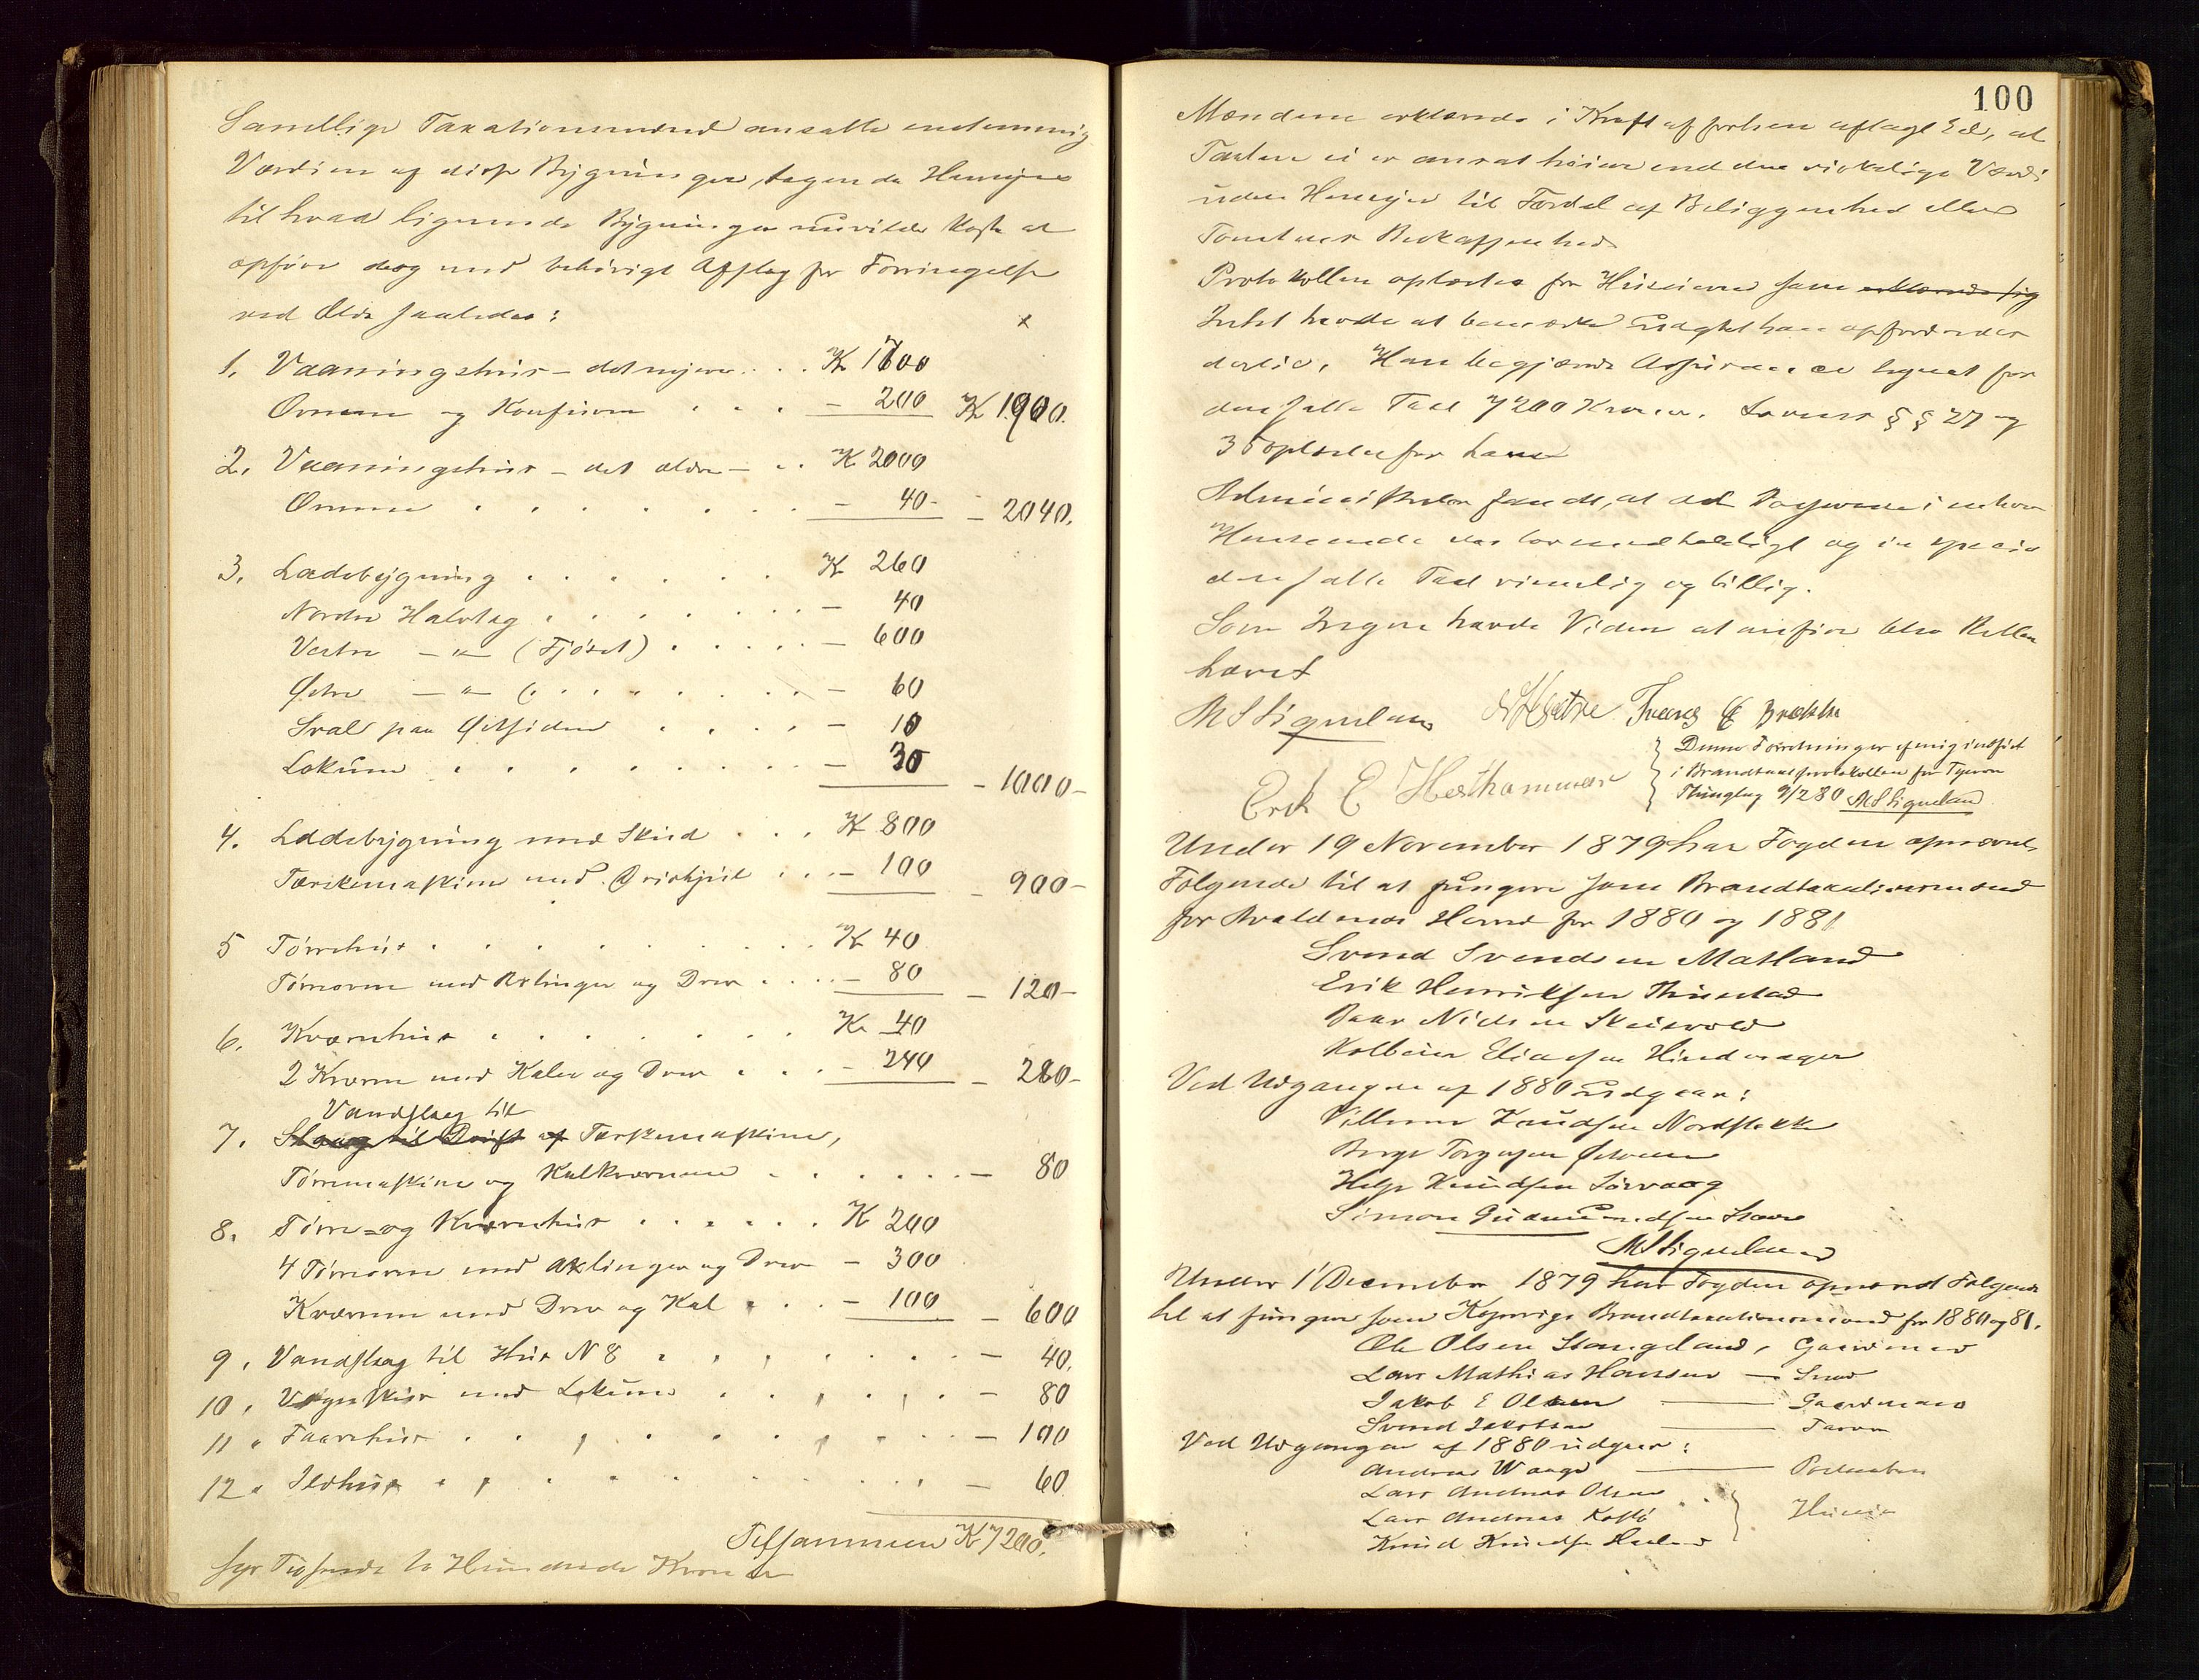 Samtlige Taxationsmænd ansatte enstemmig
Værdien af disse Bygninger, tagende Hensyn
til hvad lignende Bygninger nu vilde koste at
opføre dog med behørigt Afslag for Forringelse
ved Ælde saaledes:
1. Vaaningshus – det nyere . . K 1700
Ovnene og Komfuren . . . – 200 K 1900.
2. Vaaningshus – det ældre – . . K 2000
Ovnene . . . . . . . – 40 – – 2040.
3. Ladebygning . . . . . . K 260
Nordre Halvtag . . . . . . . – 40
Vestre – " – (Fjøset) . . . . . – 600
Østre – " – ( . . . . . . . – 60
Sval paa Østsiden . . . . – 10
Lokum . . . . . . . . – 30 – 1000 –
4. Ladebygning med Skud . . . K 800
Tærskemaskine med Svinghjul . . . – 100 – 900 –
5 Tørrehus . . . . . . . . K 40
Tørreovn med Redninger og Drev . . . – 80 – 120 –
6. Kværnhus . . . . . . . K 40
2 Kværne med Kaler og Drev . . . – 240 – 280 –
Vandslag til
7. Slaag til Drift af Tærskemaskine,
Tørremaskine og Kalkværnene . . . . . . – 80
8. Tørre- og Kværnhus . . . . . . K 200
4 Tørreovne med Axlinger og Drev – 300
Kværnene med Drev og Kal . . . – 100 – 600
9. Vandslag til Hus N 8 . . . . . . . – 40.
10. Vognskur med Lokum . . . . . . – 80
11. Faarehus . . . . . . . . . – 100
12. Ildhus . . . . . . . . . . – 60
Tilsammen K 7200.
syv Tusende to Hundrede Kroner
100
Mændene erklærede i Kraft af forhen aflagt Ed, at
Taxten ei er ansat høiere end den virkelige Værdi
uden Hensyn til Fordel af Beliggenhed eller
Tomtens Beskaffenhed
Protokollen oplæstes for Huseieren som erklærede sig
Intet havde at bemærke uagtet han opfordredes
dertil. Han begjærede Assurance tegnet for
den satte Taxt 7200 Kroner. Lovens § § 27 og
35 oplæstes for ham
Administrator fandt, at ad Bøgerne i enhver
Henseende var lovmedholdigt og in specie
den satte Taxt rimelig og billig.
Som Ingen havde Viden at anføre blev Retten
hævet
M S Siqueland Frans E Brekke
Erik E Hesthammer
Denne Forretning er af mig indført
i Brandtaxtprotokollen for Tysvær
Thinglag 9/2 80 M S Siqueland
Under 19 November 1879 har Fogden opnævnt
Følgende til at fungere som Brandtaxationsmænd
for Avaldsnes Herred for 1880 og 1881
Svend Svendsen Matland
Erik Henriksen Thuestad
Peder Nielsen Skeisvold
Kolbein Eliassen Hinderager
Ved Udgangen af 1880 udgaar:
Villum Knudsen Nordstokke
Børge Torgersen Østrem
Helge Knudsen Sørvaag
Simon Gudmundsen Stave
M S Siqueland
Under 1 December 1879 har Fogden opnævnt Følgende
til at fungere som Kopervigs Brandtaxationsmænd for 1880 og 81.
Ole Olsen Stangeland, Gaardmand
Lars Mathias Hansen — Smed
Jakob E Olsen — Gaardmand
Svend Jakobsen — Farver
Ved Udgangen af 1880 udgaar:
Andreas Waage — Postaaben
Lars Andreas Olsen
Lars Andreas Kosbø Huseier
Knud Knudsen Haaland